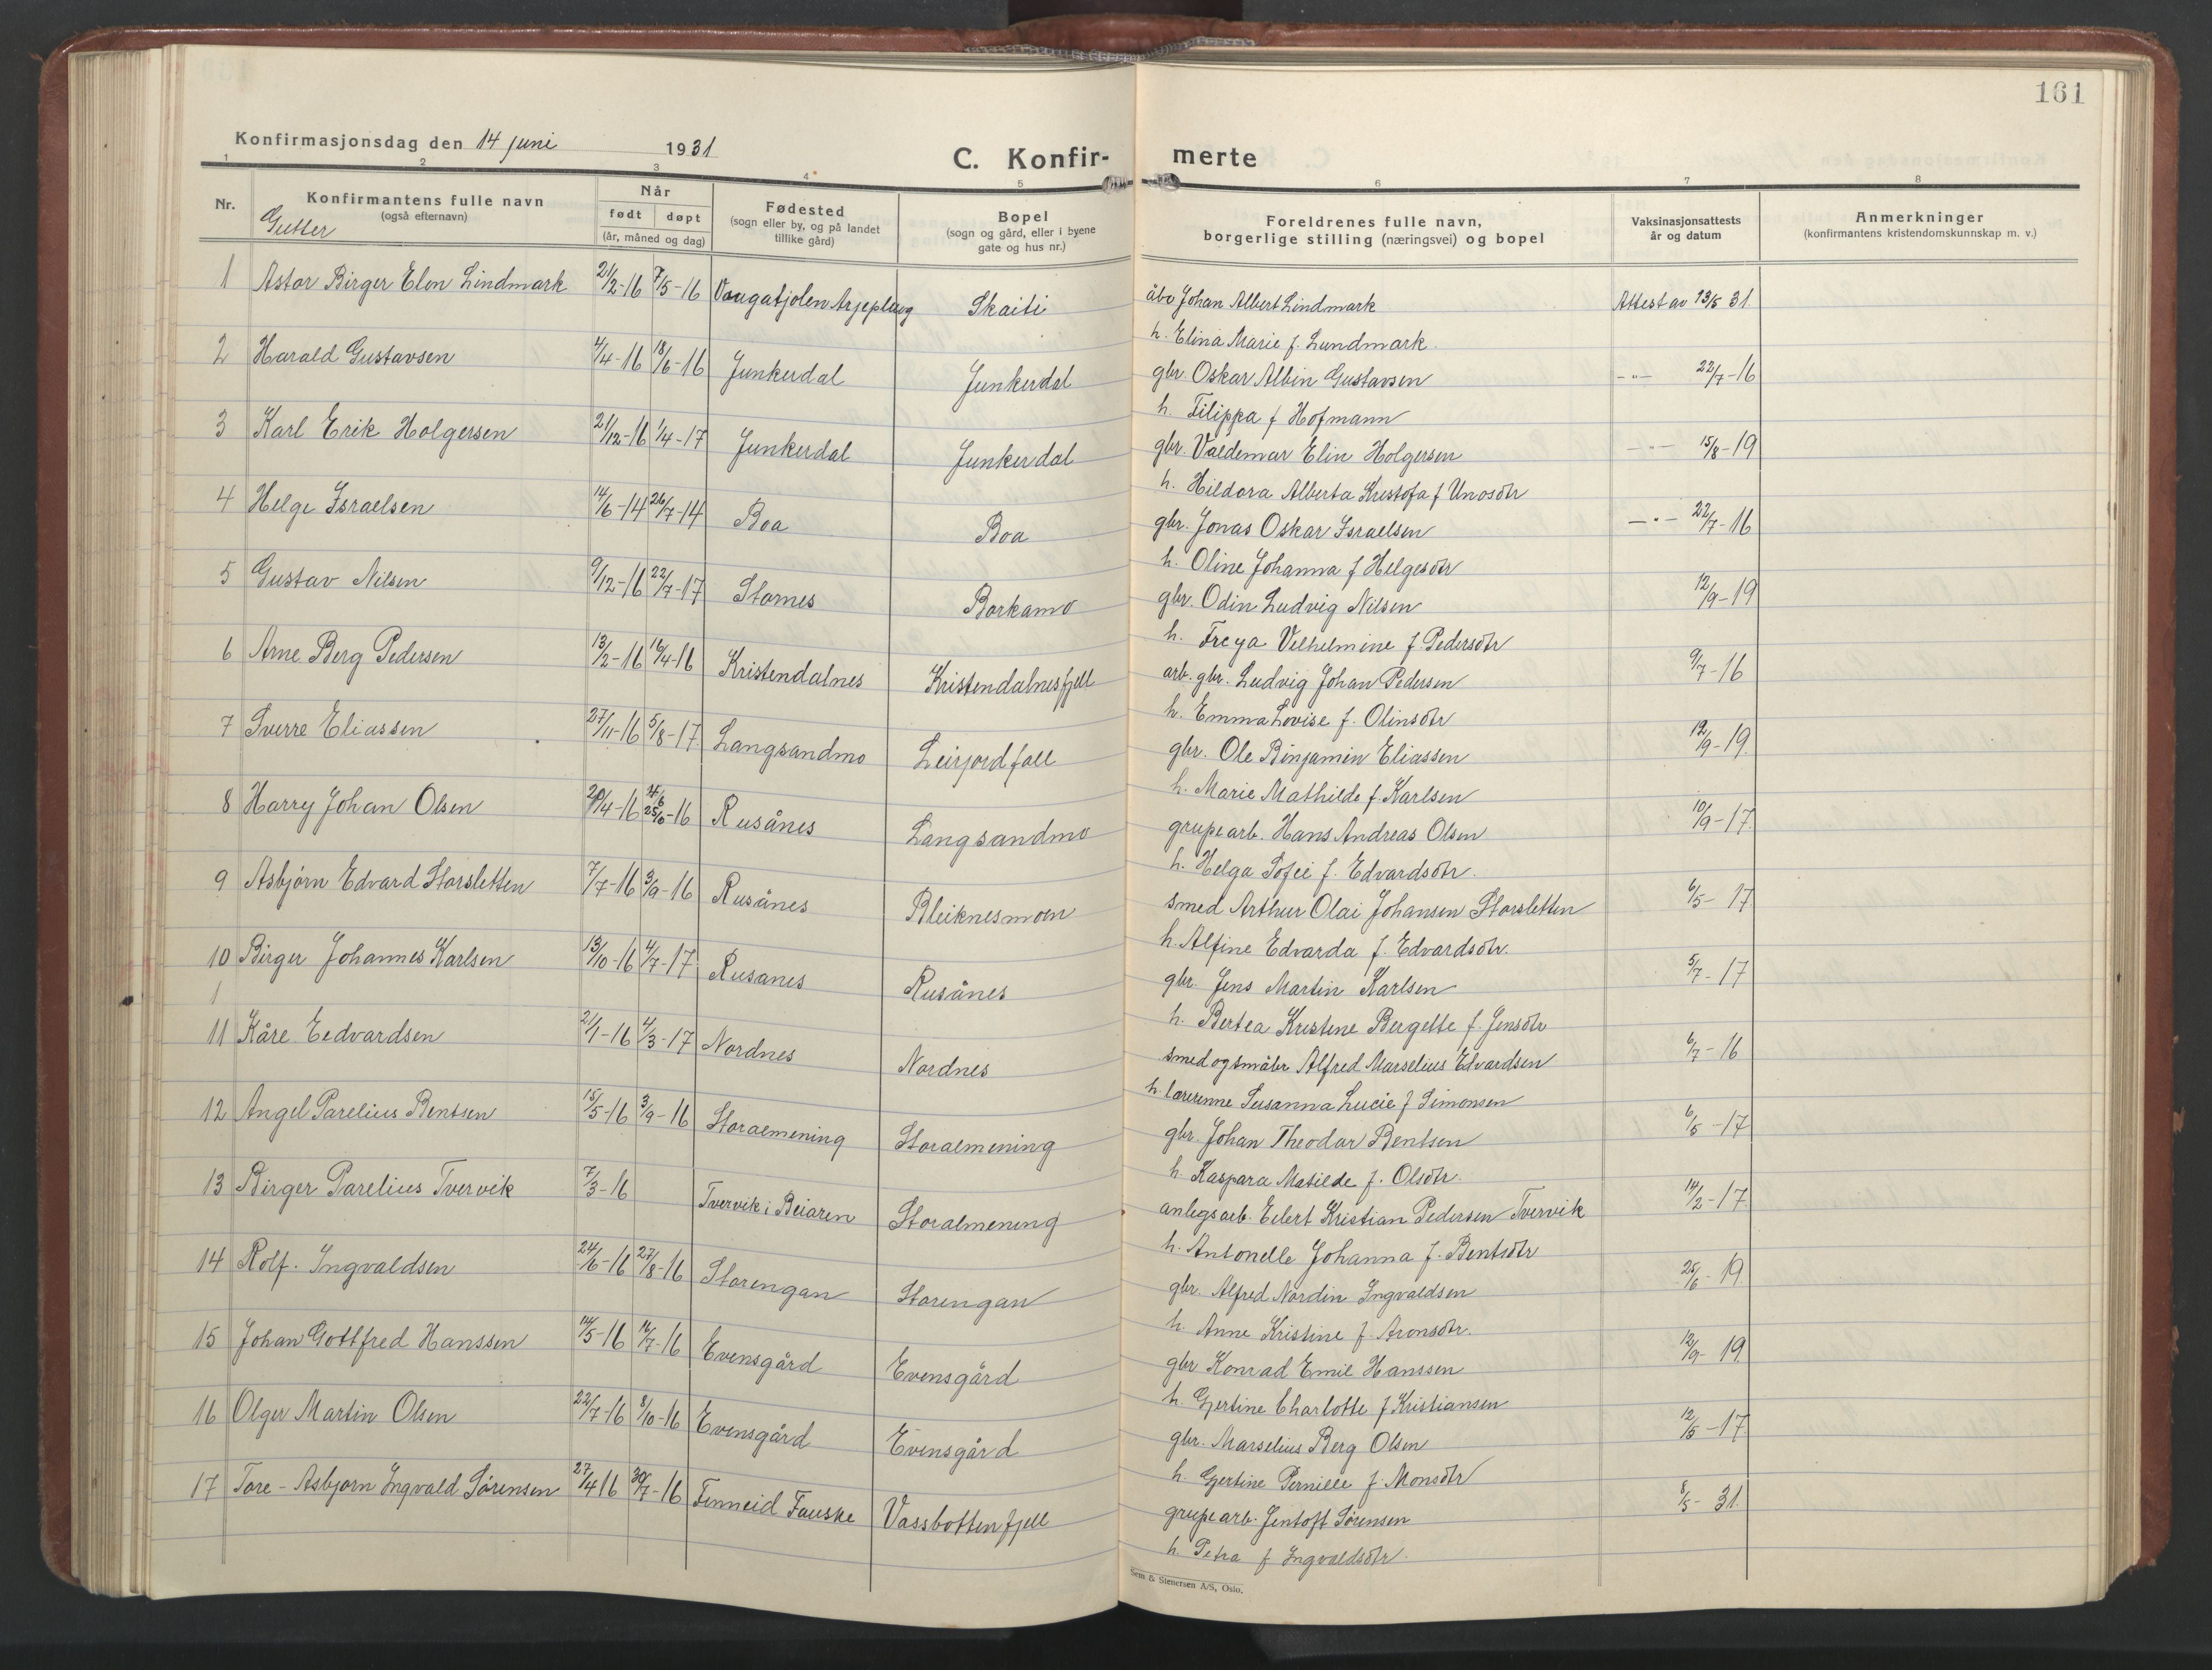 161
Konfirmasjonsdag den 14 juni 1931
C. Konfir- merte
1 2 3 4 5 6 7 8
Nr. Konfirmantens fulle navn (også efternavn) Gutter Når født døpt (år, måned og dag) Fødested (sogn eller by, og på landet tillike gård) Bopel (sogn og gård, eller i byene gate og hus nr.) Foreldrenes fulle navn, borgerlige stilling (næringsvei) og bopel Vaksinasjonsattests år og datum Anmerkninger (konfirmantens kristendomskunnskap m. v.)
1 Astor Birger Elon Lindmark 21/2-16 7/5-16 Arjepluog Skaiti åbr Johan Albert Lindmark Attest av 13/5 31
h. Elina Marie f. Lundmark
2 Harald Gustavsen 4/4-16 18/6-16 Junkerdal Junkerdal gbr. Oskar Albin Gustavsen -"- 22/7-16
h. Filippa f Hofmann
3 Karl Erik Holgersen 21/12-16 1/4-17 Junkerdal Junkerdal gbr. Valdemar Elin Holgersen -"- 15/8-19
h. Hildora Alberta Kristofa f Unosdtr
4 Helge Israelsen 14/6-14 26/7-14 Boa Boa gbr. Jonas Oskar Israelsen -"- 22/7-16
h. Oline Johanna f Helgesdtr
5 Gustav Nilsen 9/12-16 22/7-17 Stornes Borkamo gbr. Odin Ludvig Nilsen 12/9-19
h. Freya Velhelmine f. Pedersdtr
6 Arne Berg Pedersen 13/2-16 16/4-16 Kristendalnes Kristendalnesfjell arb. gbr. Ludvig Johan Pedersen 9/7-16
h. Emma Lovise f. Olinsdtr
7 Sverre Eliassen 27/11-16 5/8-17 Langsandmo Leirjordfall gbr. Ole Binjamin Eliassen 12/9-19
h. Marie Mathilde f. Karlsen
8 Harry Johan Olsen 20/4-16 25/6-16 Rusånes Langsandmo grupearb. Hans Andreas Olsen 10/9-17
h. Helga Sofie f. Edvardsdtr.
9 Asbjørn Edvard Storsletten 7/7-16 3/9-16 Rusånes Bleiknesmoen smed Arthur Olai Johansen Storsletten 6/5-17
h. Alfine Edvarda f. Edvardsdtr.
10 Birger Johannes Karlsen 13/10-16 4/7-17 Rusanes Rusånes gbr. Jens Martin Karlsen 5/7-17
h. Bertea Kristine Bergette f. Jensdtr
11 Kåre Eedvardsen 21/1-16 4/3-17 Nordnes Nordnes smed og småbr Alfred Marselius Edvardsen 6/7-16
h. lærerinne Susanna Lucie f Simonsen
12 Angel Parelius Bentsen 15/5-16 3/9-16 Storalmening Storalmening gbr. Johan Theodor Bentsen 6/5-17
h. Kaspara Matilde f. Olsdtr.
13 Birger Parelius Tvervik 7/3-16 Tvervik i Beiaren Storalmening anlegsarb. Eilert Kristian Pedersen Tvervik 14/2-17
h. Antonelle Johanna f. Bentsdtr
14 Rolf. Ingvaldsen 24/6-16 27/8-16 Storengan Storengan gbr. Alfred Nordin Ingvaldsen 25/6-19
h. Anne Kristine f. Aronsdtr.
15 Johan Gottfred Hanssen 14/5-16 16/7-16 Evensgård Evensgård gbr Konrad Emil Hanssen 12/9-19
h. Gjertine Charlotte f Kristiansen
16 Olger Martin Olsen 22/7-16 8/10-16 Evensgård Evensgård gbr. Marselius Berg Olsen 12/5-17
h. Gjertine Pernille f. Monsdtr
17 Tore - Asbjørn Ingvald Sørensen 27/4 16 30/7-16 Finneid Fauske Vassbottenfjell grupearb. Jentoft Sørensen 8/5-31
h. Petra f Ingvaldsdtr.
Sem & Stenersen A/S, Oslo.